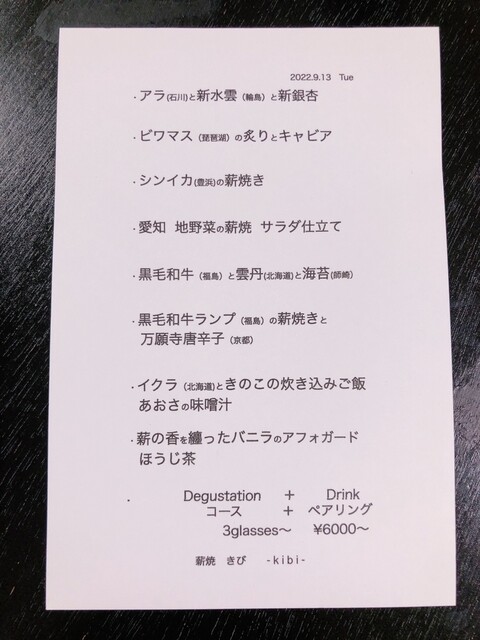 2022.9.13 Tue
・アラ(石川)と新水雲（輪島）と新銀杏
・ビワマス（琵琶湖）の炙りとキャビア
・シンイカ(豊浜)の薪焼き
・愛知 地野菜の薪焼 サラダ仕立て
・黒毛和牛（福島）と雲丹(北海道)と海苔(師崎)
・黒毛和牛ランプ（福島）の薪焼きと
万願寺唐辛子（京都）
・イクラ（北海道)ときのこの炊き込みご飯
あおさの味噌汁
・薪の香を纏ったバニラのアフォガード
ほうじ茶
・ Degustation + Drink
コース + ペアリング
3glasses〜 ¥6000〜
薪焼 きび -kibi-